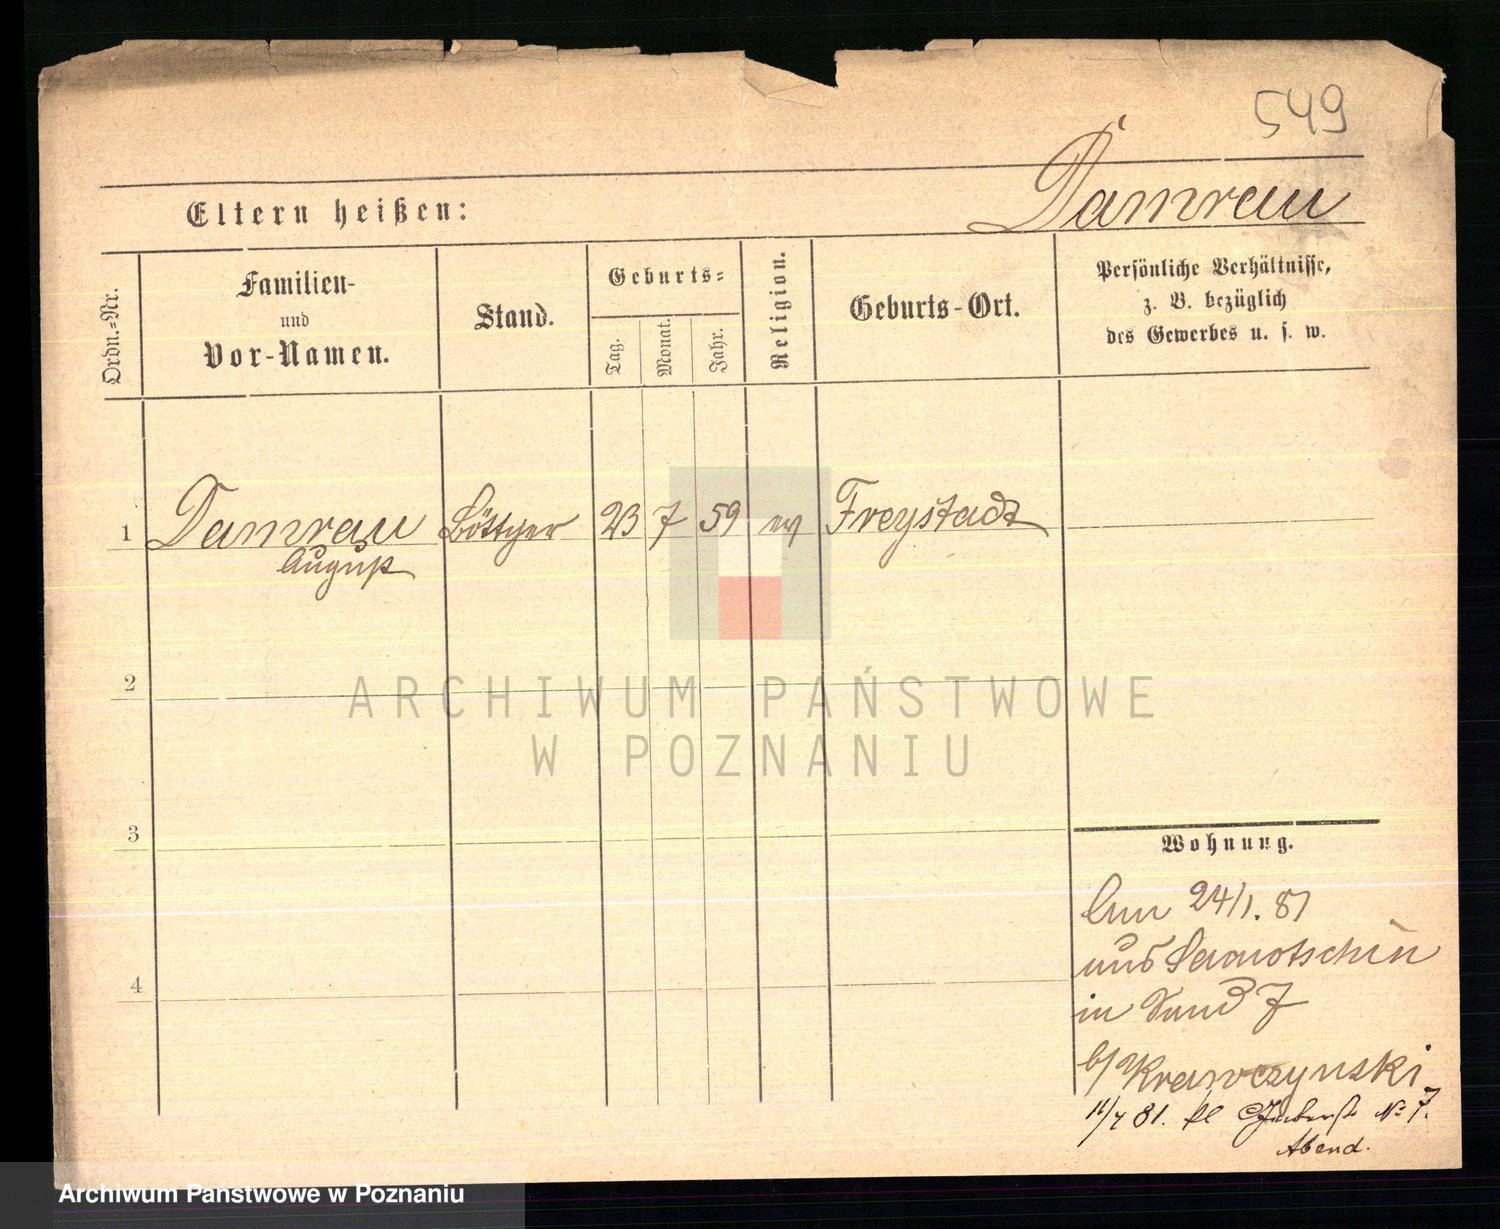 549
Eltern heißen: Damrau
Ordn.=Nr.
Familien-
und
Vor-Namen.
Stand.
Geburts=
Tag.
Monat.
Jahr.
Religion.
Geburts-Ort.
Persönliche Verhältnisse,
z. B. bezüglich
des Gewerbes u. s. w.
1 Damrau Böttger 23 7 59 ev Freystadt
August
2
3
4
ARCHIWUM PAŃSTWOWE
W POZNANIU
Wohnung.
Am 24/1. 81
aus Samotschin
in Sand 7
b/ Krawczynski
11/4 81. kl No 7.
Abend.
Archiwum Państwowe w Poznaniu